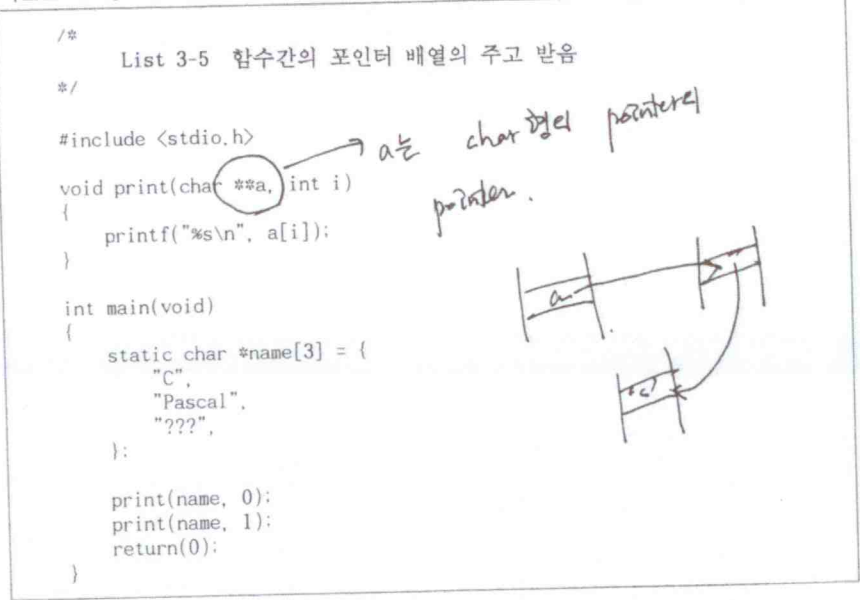 /*
List 3-5 함수간의 포인터 배열의 주고 받음
*/
#include <stdio.h>
void print(char **a, int i)
{
printf("%s\n", a[i]);
}
int main(void)
{
static char *name[3] = {
"C",
"Pascal",
"???",
};
print(name, 0);
print(name, 1);
return(0);
}
a는 char형의 pointer의
pointer.
a
'c'